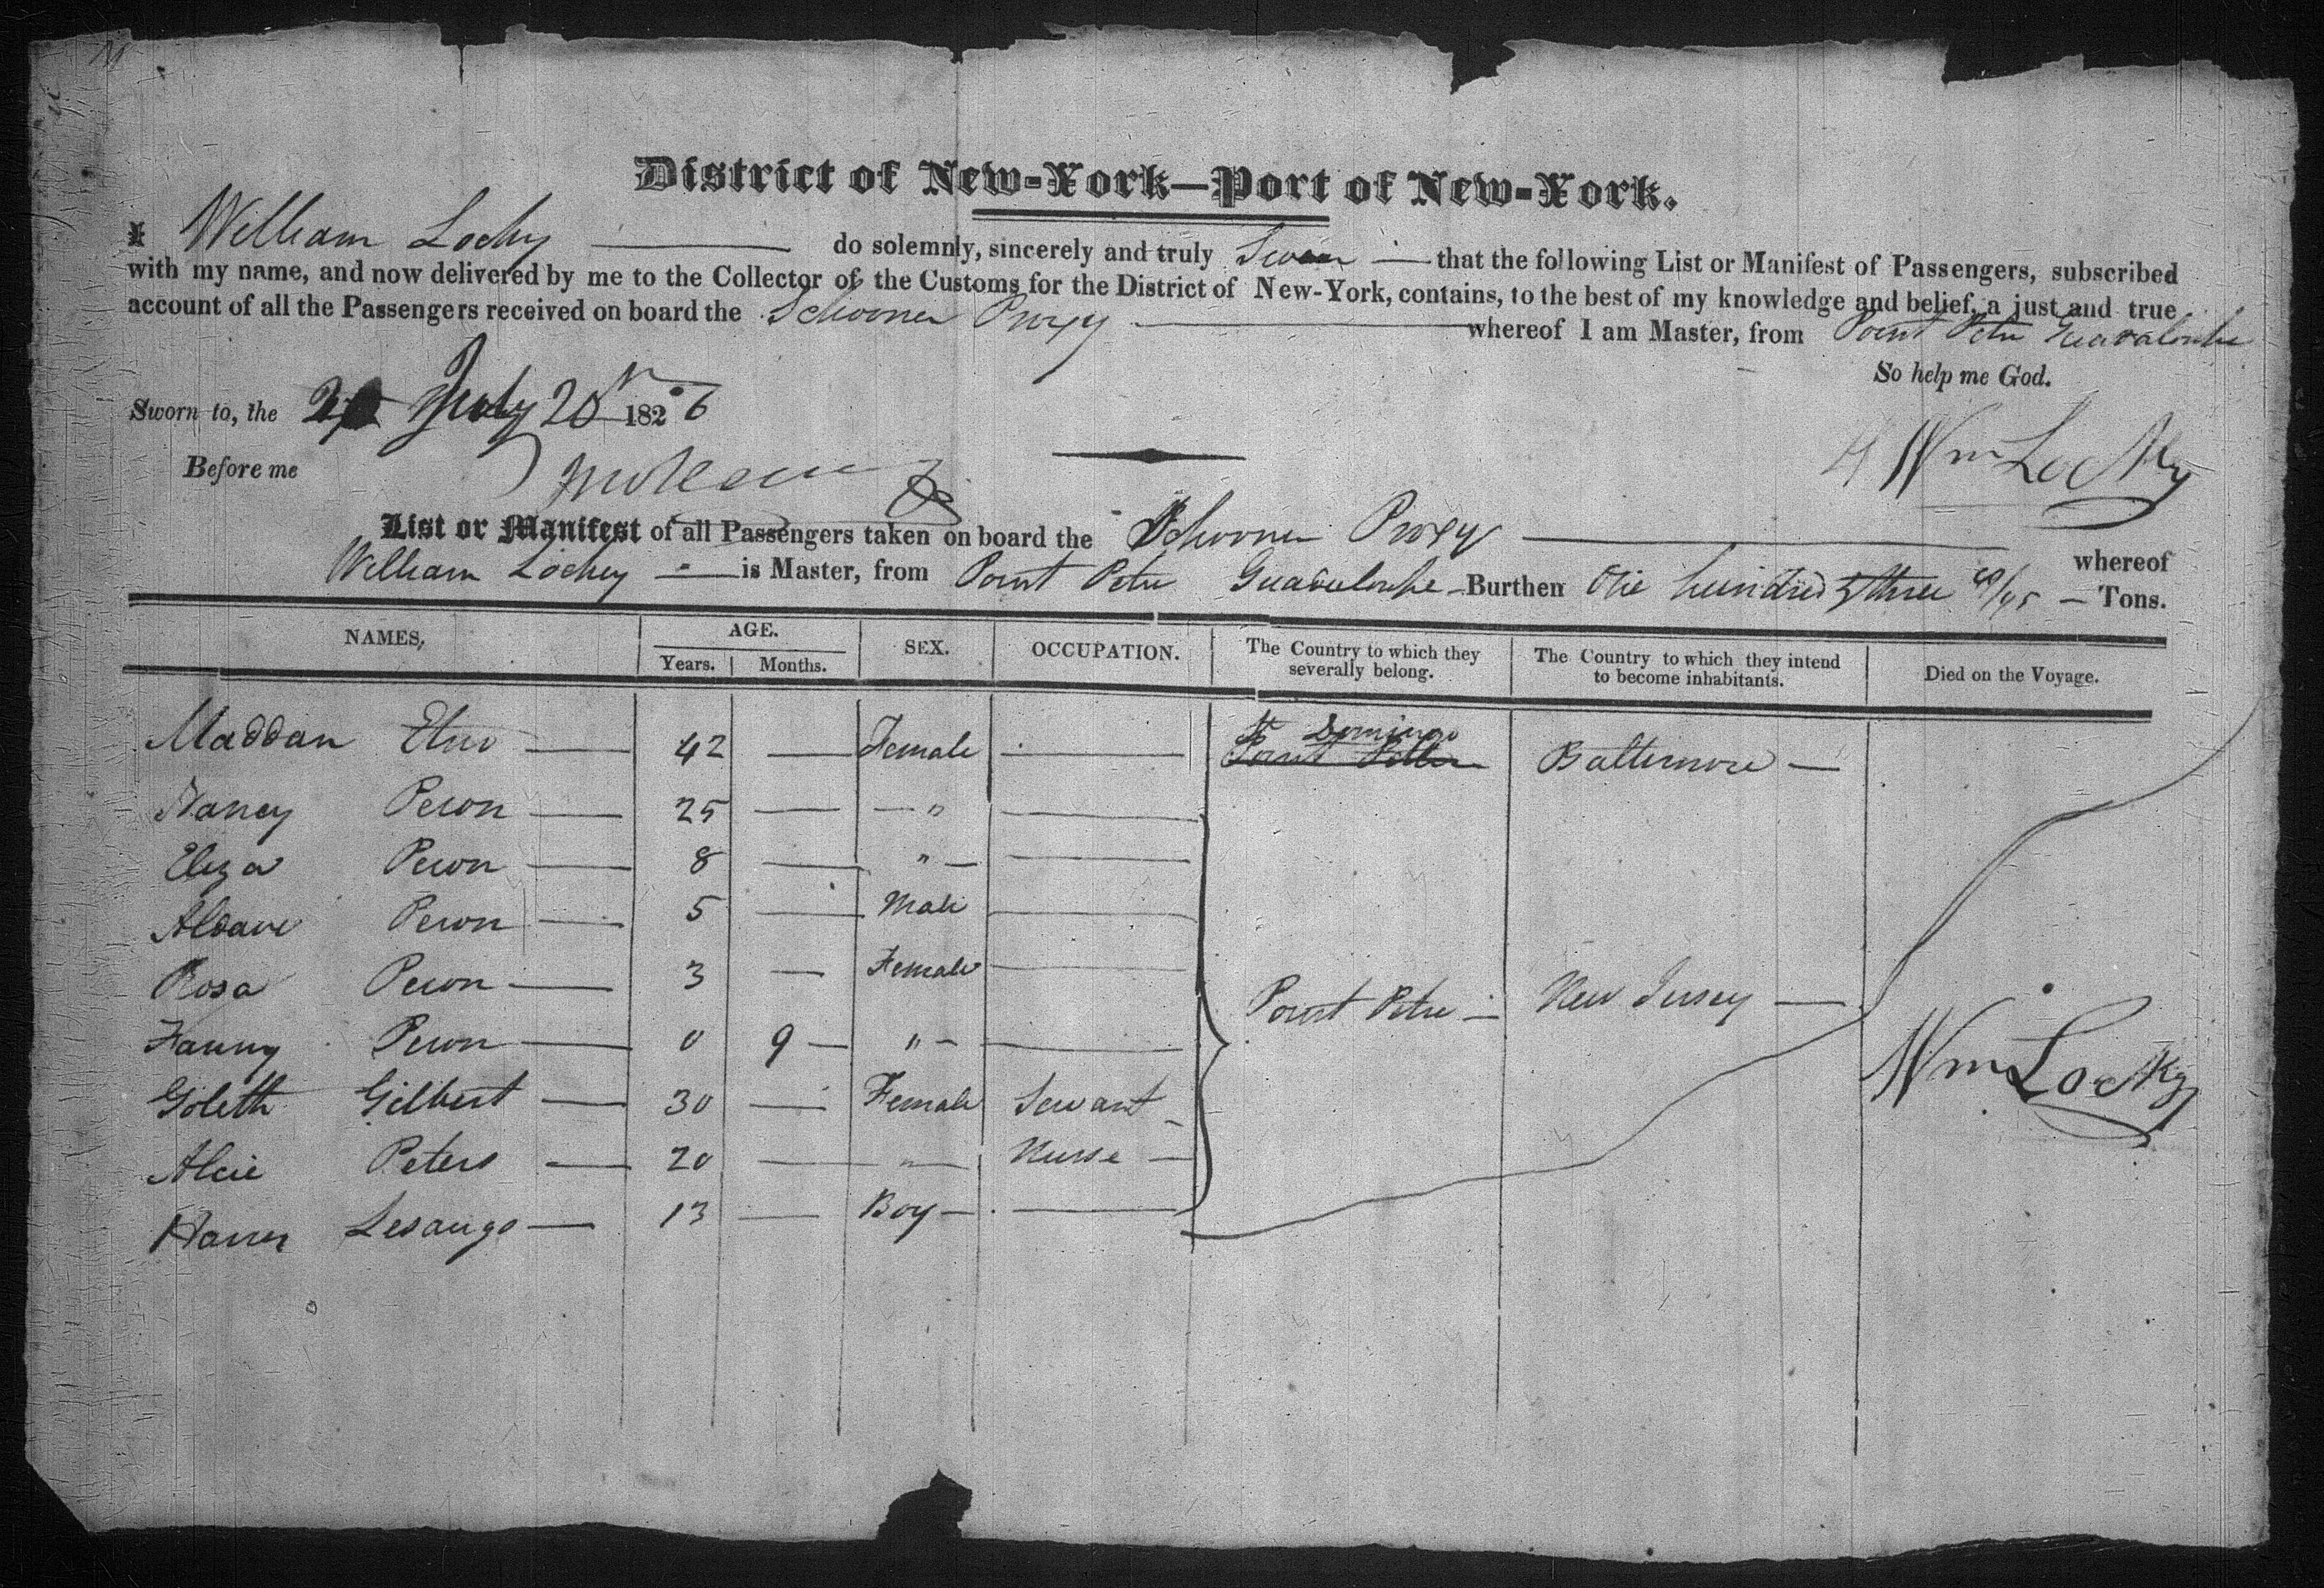 District of New-York—Port of New-York.
I William Lockey do solemnly, sincerely and truly Swear that the following List or Manifest of Passengers, subscribed
with my name, and now delivered by me to the Collector of the Customs for the District of New-York, contains, to the best of my knowledge and belief, a just and true
account of all the Passengers received on board the Schooner Proxy whereof I am Master, from Point Petre Guadaloupe
So help me God.
Sworn to, the July 20th 1826
Before me
Wm Lockey
List or Manifest of all Passengers taken on board the Schooner Proxy whereof
William Lockey is Master, from Point Petre Guadeloupe Burthen One hundred & three 60/95 Tons.
NAMES, AGE. SEX. OCCUPATION. The Country to which they severally belong. The Country to which they intend to become inhabitants. Died on the Voyage.
Years. Months.
Maddan 42 — Female — St Domingo Baltimore —
Nancy Peron — 25 — " —
Eliza Peron — 8 — " —
Peron — 5 — Male —
Rosa Peron — 3 — Female —
Point Petre — New Jersey —
Fanny Peron — 0 9 — " —
Goleth Gilbert — 30 — Female Servant —
Wm Lockey
Alcie Peters — 20 — " — Nurse —
Lesango — 13 — Boy —